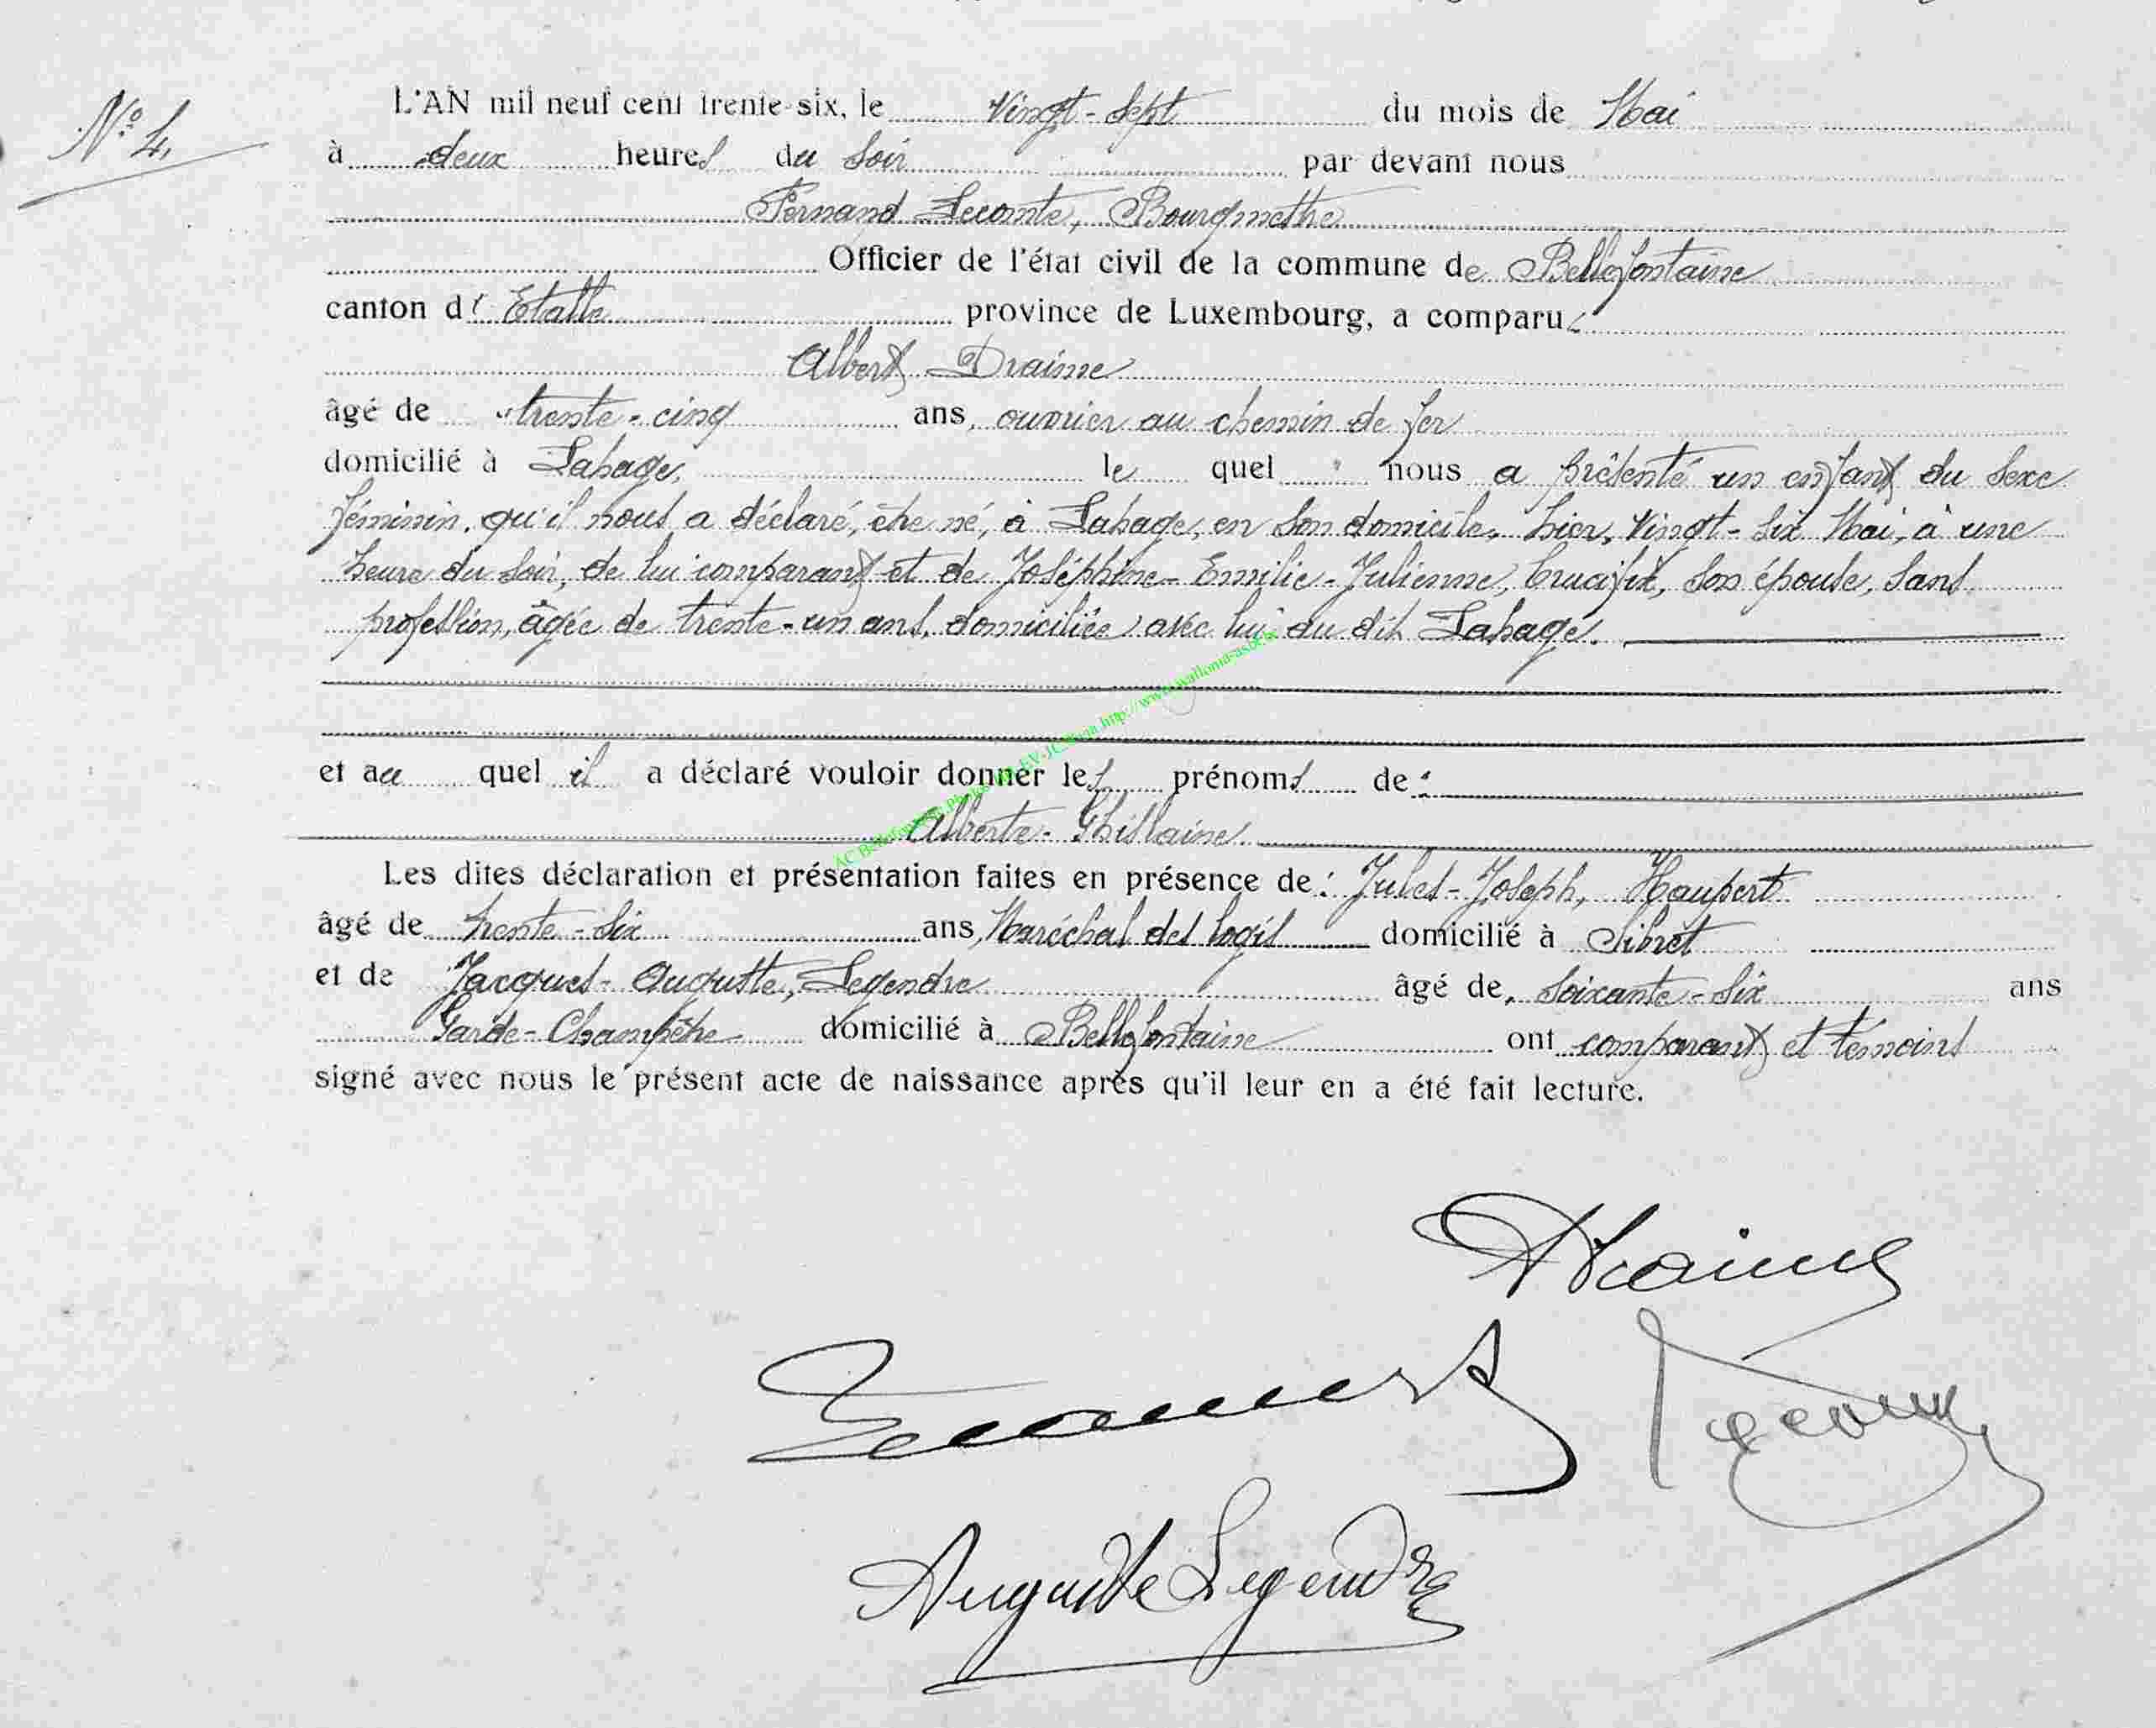 N° 4.
L'AN mil neuf cent trente-six, le Vingt-Sept du mois de Mai
à deux heures du Soir par devant nous
Fernand Lecomte, Bourgmestre
Officier de l'état civil de la commune de Bellefontaine
canton d'Etalle province de Luxembourg, a comparu
Albert Draime
âgé de trente-cinq ans, ouvrier au chemin de fer
domicilié à Lahage, le quel nous a présenté un enfant du Sexe
féminin, qu'il nous a déclaré, être né, à Lahage, en Son domicile, hier, Vingt-Six Mai, à une
heure du Soir, de lui comparant et de Joséphine-Emilie-Julienne, Crucifix, Son épouse, Sans
profession, âgée de trente-un ans, domiciliée avec lui au dit Lahage.
et au quel il a déclaré vouloir donner les prénoms de :
Alberte-Ghislaine
Les dites déclaration et présentation faites en présence de : Jules-Joseph, Haupert
âgé de trente-Six ans, Maréchal des logis domicilié à Sibret
et de Jacques-Auguste, Legendre âgé de, Soixante-Six ans
Garde-Champêtre domicilié à Bellefontaine ont comparant et témoins
signé avec nous le présent acte de naissance après qu'il leur en a été fait lecture.
ADraime
Lecomte
Auguste Legendre